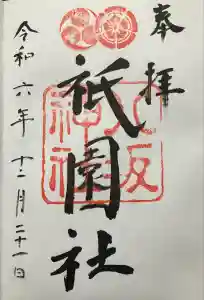 奉拝
祇園社
八坂神社
令和六年十二月二十一日